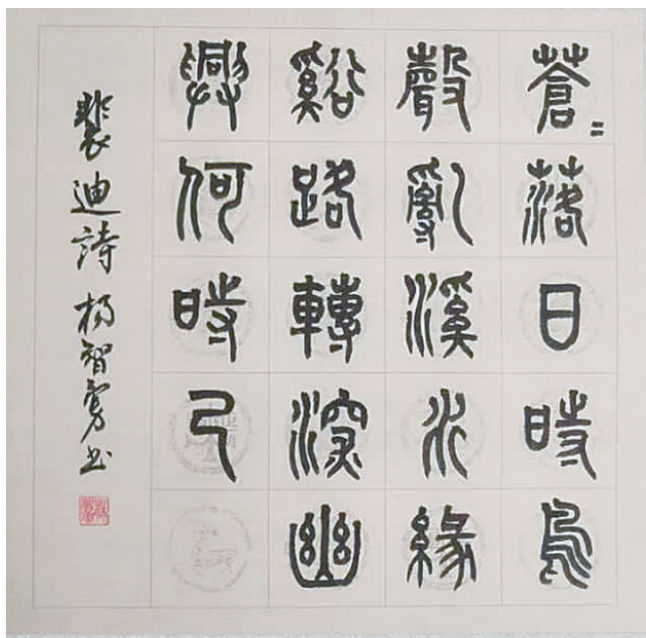 蒼〻落日時鳥
聲亂溪水緣
谿路轉深幽
興何時已
裴迪詩 杨智勇书